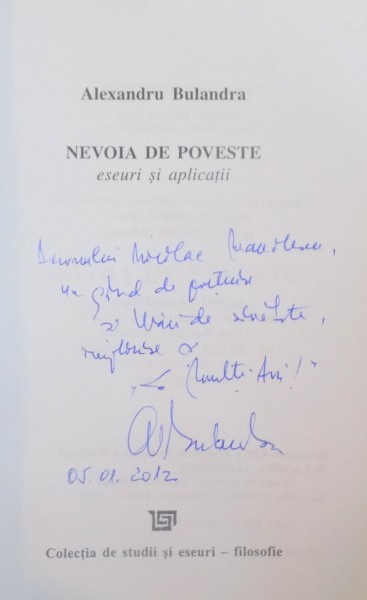 Alexandru Bulandra
NEVOIA DE POVESTE
eseuri și aplicații
Domnului Nicolae Manolescu,
un gând de prețuire
și Urări de sănătate,
împlinire și
„La Mulți Ani!”
Al Bulandra
05.01.2012
Colecția de studii și eseuri – filosofie